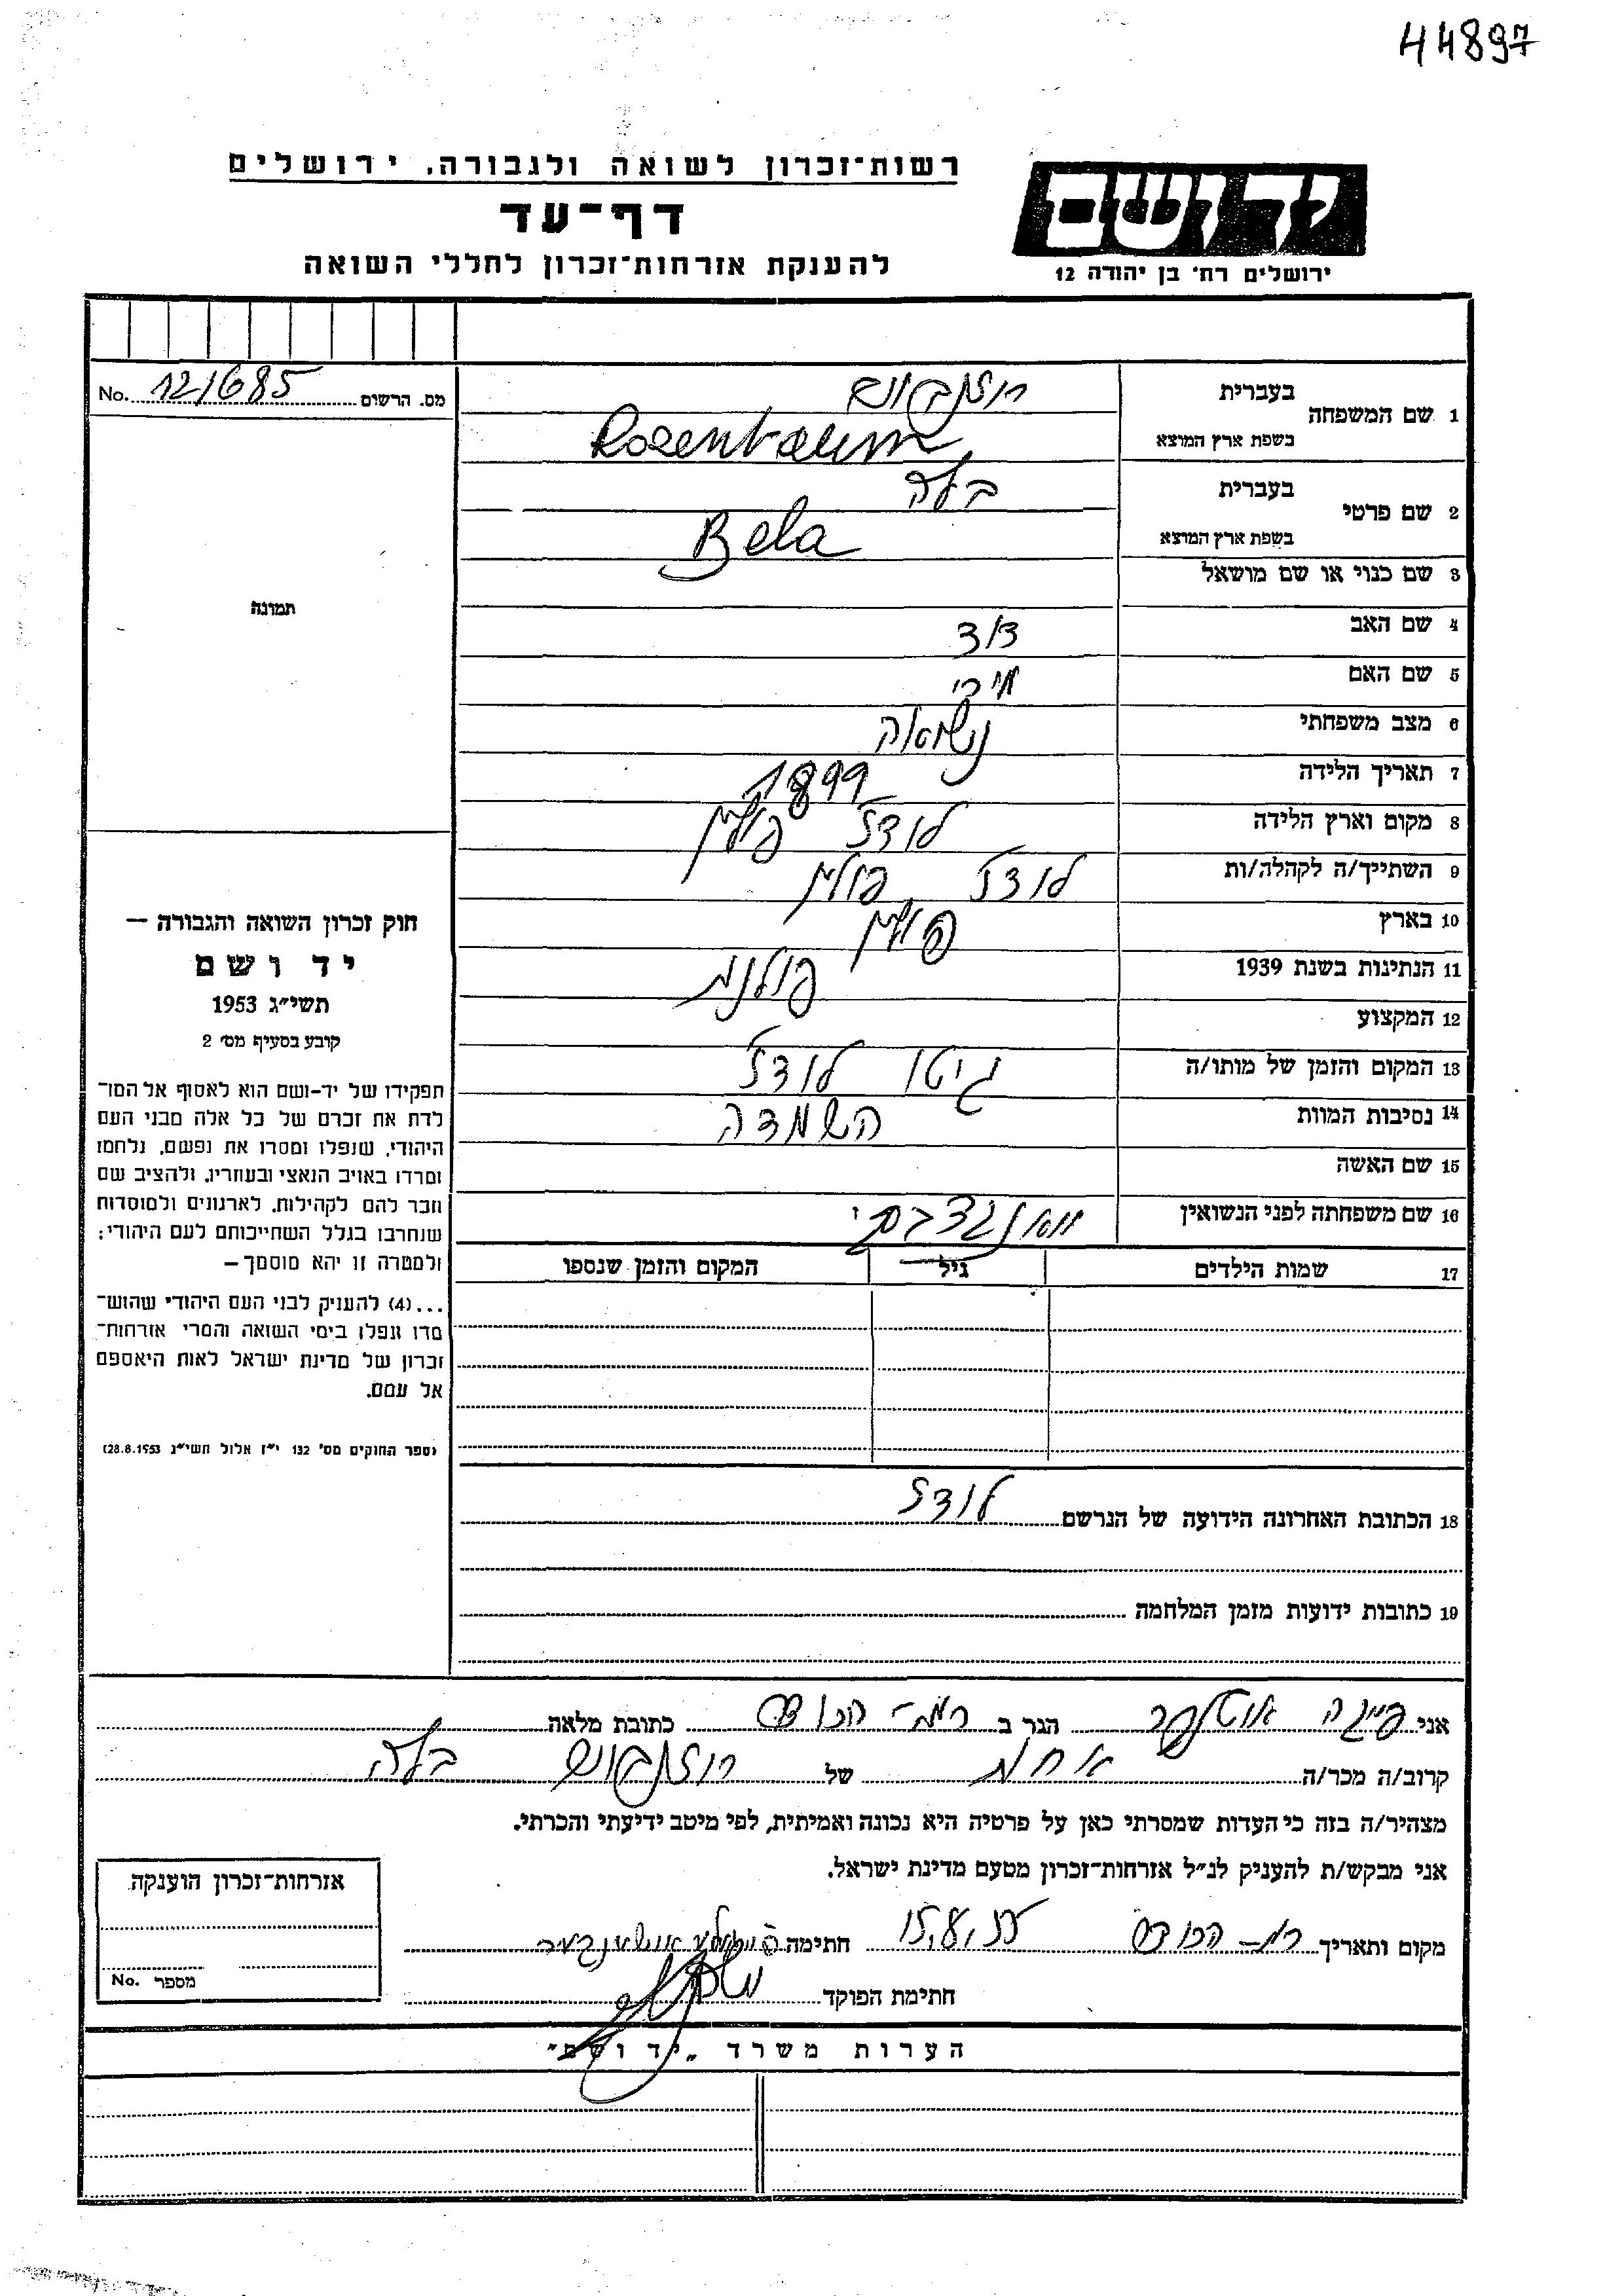 44897
רשות־זכרון לשואה ולגבורה, ירושלים
דף־עד
להענקת אזרחות־זכרון לחללי השואה
יד ושם
ירושלים רח' בן יהודה 12
מס. הרשום No. 121685
1 שם המשפחה בעברית רוזנבוים
בשפת ארץ המוצא Rosenbaum
2 שם פרטי בעברית בלה
בשפת ארץ המוצא Bela
3 שם כנוי או שם מושאל
4 שם האב דוד
5 שם האם
6 מצב משפחתי נשואה
7 תאריך הלידה 1899
8 מקום וארץ הלידה לודז פולין
9 השתייך/ה לקהלה/ות לודז פולין
10 בארץ פולין
11 הנתינות בשנת 1939 פולנית
12 המקצוע
13 המקום והזמן של מותו/ה גיטו לודז
14 נסיבות המוות השמדה
15 שם האשה
16 שם משפחתה לפני הנשואין
17 שמות הילדים גיל המקום והזמן שנספו
תמונה
חוק זכרון השואה והגבורה —
יד ושם
תשי״ג 1953
קובע בסעיף מס׳ 2
תפקידו של יד-ושם הוא לאסוף אל המו־
לדת את זכרם של כל אלה מבני העם
היהודי, שנפלו ומסרו את נפשם, נלחמו
ומרדו באויב הנאצי ובעוזריו, ולהציב שם
וזכר להם לקהילות, לארגונים ולמוסדות
שנחרבו בגלל השתייכותם לעם היהודי;
ולמטרה זו יהא מוסמך —
...(4) להעניק לבני העם היהודי שהוש־
מדו ונפלו בימי השואה והמרי אזרחות־
זכרון של מדינת ישראל לאות היאספם
אל עמם.
(ספר החוקים מס׳ 132 י״ז אלול תשי״ג 28.8.1953)
18 הכתובת האחרונה הידועה של הנרשם לודז
19 כתובות ידועות מזמן המלחמה
אני פייגה הגר ב רמת הכובש כתובת מלאה
קרוב/ה מכר/ה אחות של רוזנבוים בלה
מצהיר/ה בזה כי העדות שמסרתי כאן על פרטיה היא נכונה ואמיתית, לפי מיטב ידיעתי והכרתי.
אני מבקש/ת להעניק לנ״ל אזרחות־זכרון מטעם מדינת ישראל.
מקום ותאריך רמת הכובש 15,8,55 חתימה
חתימת הפוקד
אזרחות־זכרון הוענקה
מספר No.
הערות משרד „יד ושם״